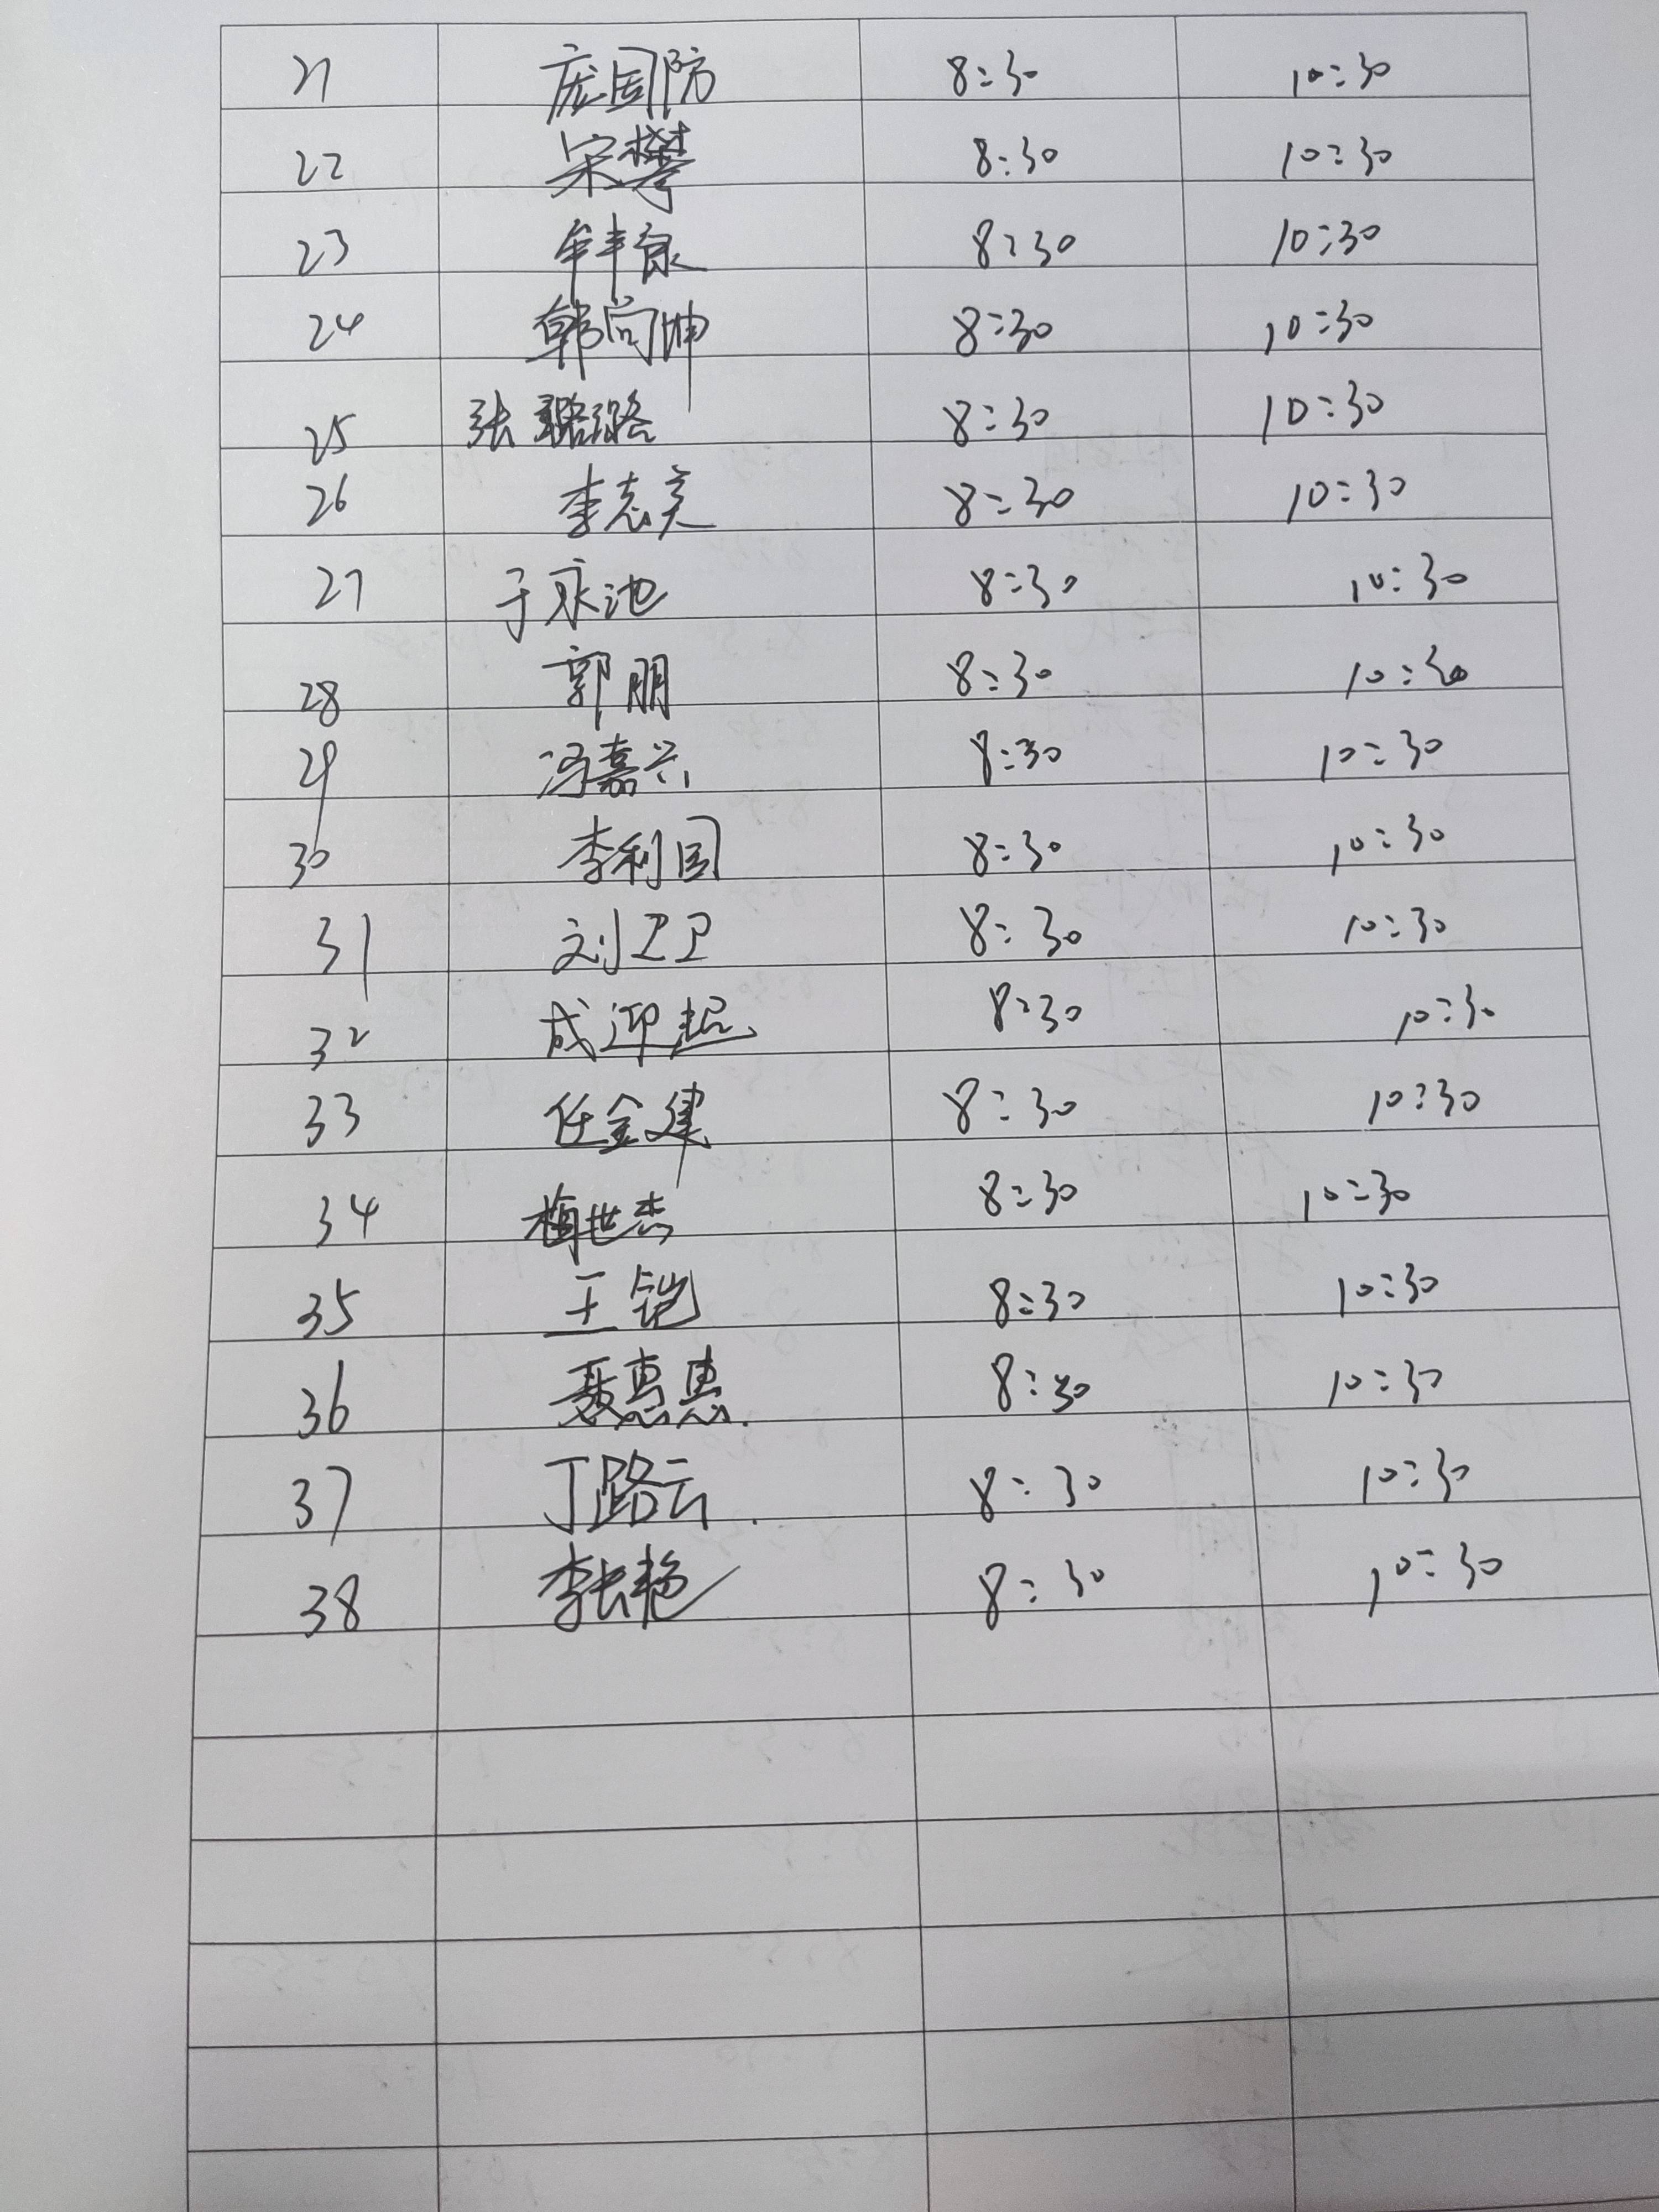 21 庞国防 8:30 10:30
22 宋攀 8:30 10:30
23 8:30 10:30
24 韩尚坤 8:30 10:30
25 张璐璐 8:30 10:30
26 李志美 8:30 10:30
27 于永池 8:30 10:30
28 郭朋 8:30 10:30
29 冯嘉兴 8:30 10:30
30 李利国 8:30 10:30
31 刘卫卫 8:30 10:30
32 成迎起 8:30 10:30
33 任金建 8:30 10:30
34 梅世杰 8:30 10:30
35 王铠 8:30 10:30
36 聂惠惠 8:30 10:30
37 丁路云 8:30 10:30
38 李长艳 8:30 10:30